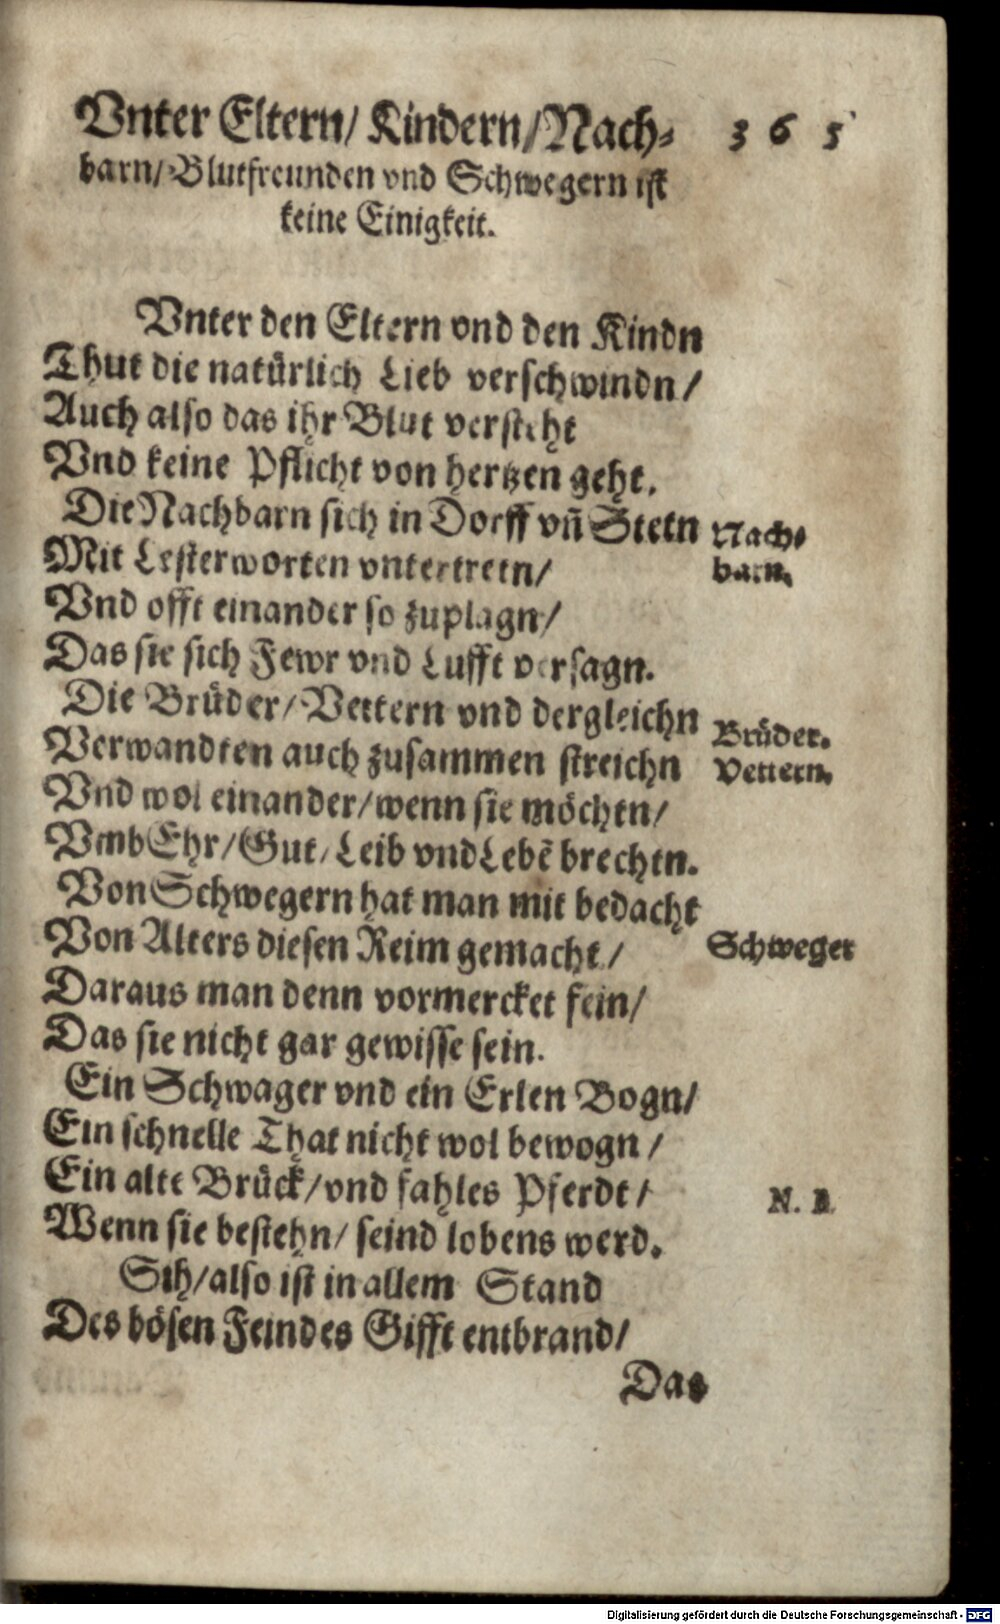 Vnter Eltern/ Kindern/ Nach- 365
barn/ Blutfreunden vnd Schwegern ist
keine Einigkeit.
Vnter den Eltern vnd den Kindn
Thut die natürlich Lieb verschwindn/
Auch also das ihr Blut versteht
Vnd keine Pflicht von hertzen geht.
Die Nachbarn sich in Dorff vñ Stetn
Nach-
barn.
Mit Lesterworten vntertretn/
Vnd offt einander so zuplagn/
Das sie sich Fewr vnd Lufft versagn.
Die Brüder/ Vettern vnd dergleichn
Brüder.
Vettern.
Verwandten auch zusammen streichn
Vnd wol einander/ wenn sie möchtn/
Vmb Ehr/ Gut/ Leib vnd Lebẽ brechtn.
Von Schwegern hat man mit bedacht
Von Alters diesen Reim gemacht/
Schweger
Daraus man denn vormercket fein/
Das sie nicht gar gewisse sein.
Ein Schwager vnd ein Erlen Bogn/
Ein schnelle That nicht wol bewogn/
Ein alte Brück/ vnd fahles Pferdt/
N. B.
Wenn sie bestehn/ seind lobens werd.
Sih/ also ist in allem Stand
Des bösen Feindes Gifft entbrand/
Das
Digitalisierung gefördert durch die Deutsche Forschungsgemeinschaft - DFG